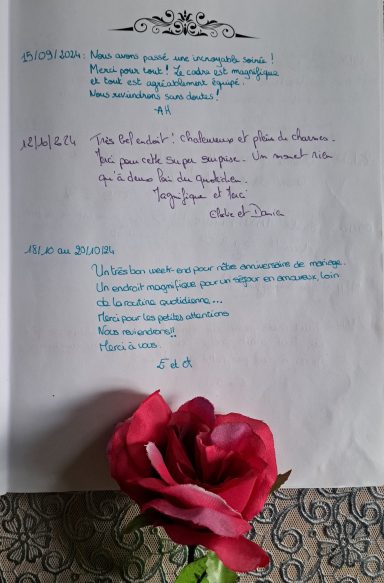 15/09/2024 : Nous avons passé une incroyable soirée !
Merci pour tout ! Le cadre est magnifique
et tout est agréablement équipé.
Nous reviendrons sans doutes !
AH
12/10/2024 Très bel endroit ! chaleureux et plein de charmes.
Merci pour cette super surprise. Un moment rien
qu'à deux loin du quotidien.
Magnifique et Merci
et
18/10 au 20/10/24
Un très bon week-end pour nôtre anniversaire de mariage.
Un endroit magnifique pour un séjour en amoureux, loin
de la routine quotidienne...
Merci pour les petites attentions
Nous reviendrons!!
Merci à vous.
E et A